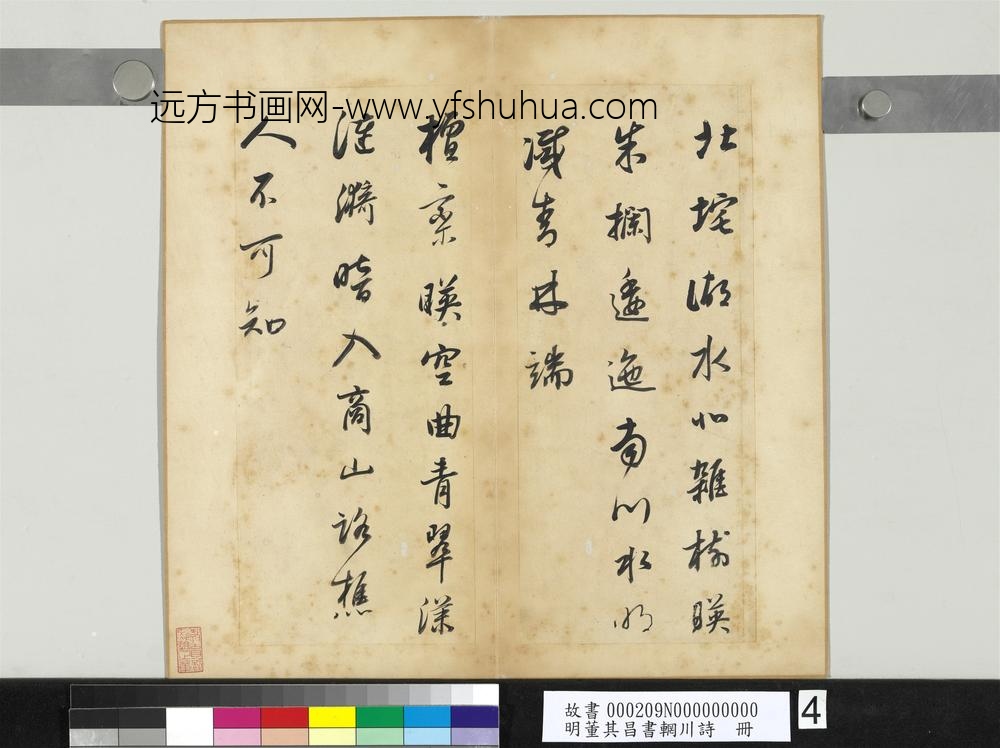 远方书画网-www.yfshuhua.com
北垞湖水北雜樹暎
朱欄逶迤南川水明
滅青林端
檀欒暎空曲青翠漾
漣漪暗入商山路樵
人不可知
故書 000209N000000000
明董其昌書輞川詩 冊
4